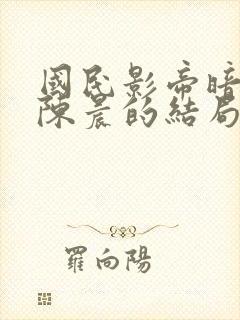 國民影帝暗
陳晨的結局
羅向陽